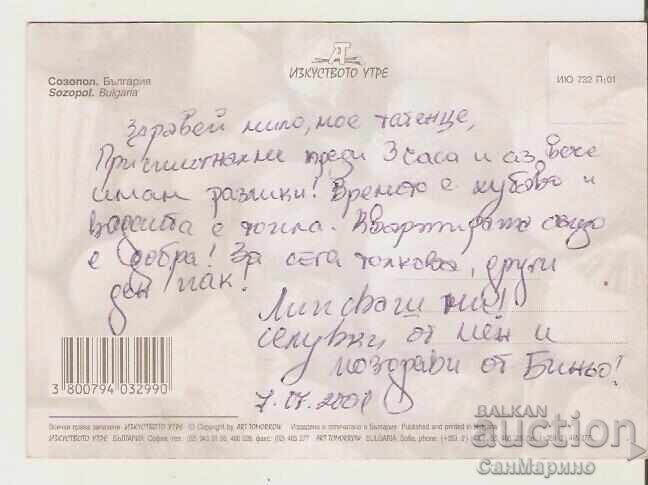 ИЗКУСТВОТО УТРЕ
Созопол. България
Sozopol. Bulgaria
ИЮ 732 П;01
Здравей мило, мое татенце,
преди 3 часа и аз вече
имам разлики! Времето е хубаво и
водата е топла. Квартирата също
е добра! За сега толкова, други
ден пак.
Липсваш ни!
целувки от мен и
поздрави от Биньо!
7.07.2001
3 800794 032990
Всички права запазени ИЗКУСТВОТО УТРЕ © Copyright by ART TOMORROW Издадено и отпечатано в България Published and printed in Bulgaria
ИЗКУСТВОТО УТРЕ БЪЛГАРИЯ: София, тел. ART TOMORROW BULGARIA: Sofia, phone:
BALKAN
auction
СанМарино